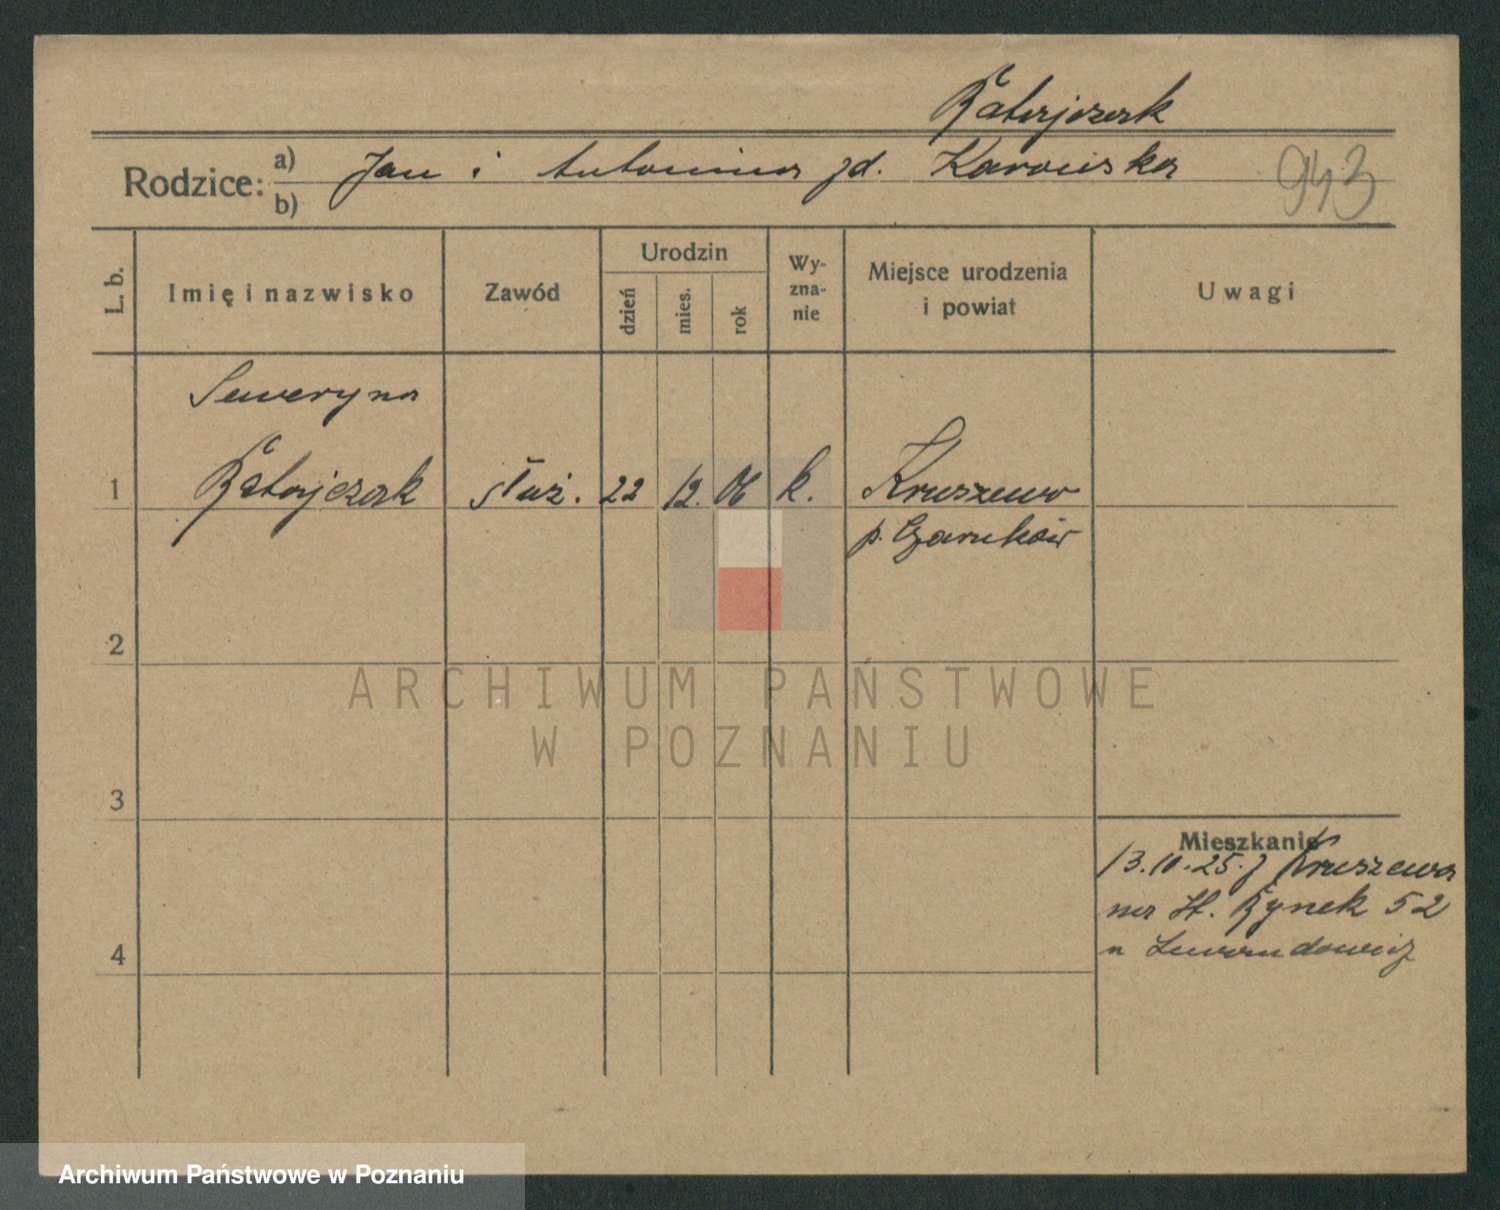 Ratajczak
Rodzice: a) Jan i Antonina zd. Karowska
b)
943
L. b. Imię i nazwisko Zawód Urodzin dzień mies. rok Wy-zna-nie Miejsce urodzenia i powiat Uwagi
Seweryna
1 Ratajczak służ. 22 12. 06 k. Kruszewo
p. Czarnków
2
ARCHIWUM PAŃSTWOWE
W POZNANIU
3
Mieszkanie
13.10.25. z Kruszewa
na St. Rynek 52
u Lewandowicz
4
Archiwum Państwowe w Poznaniu